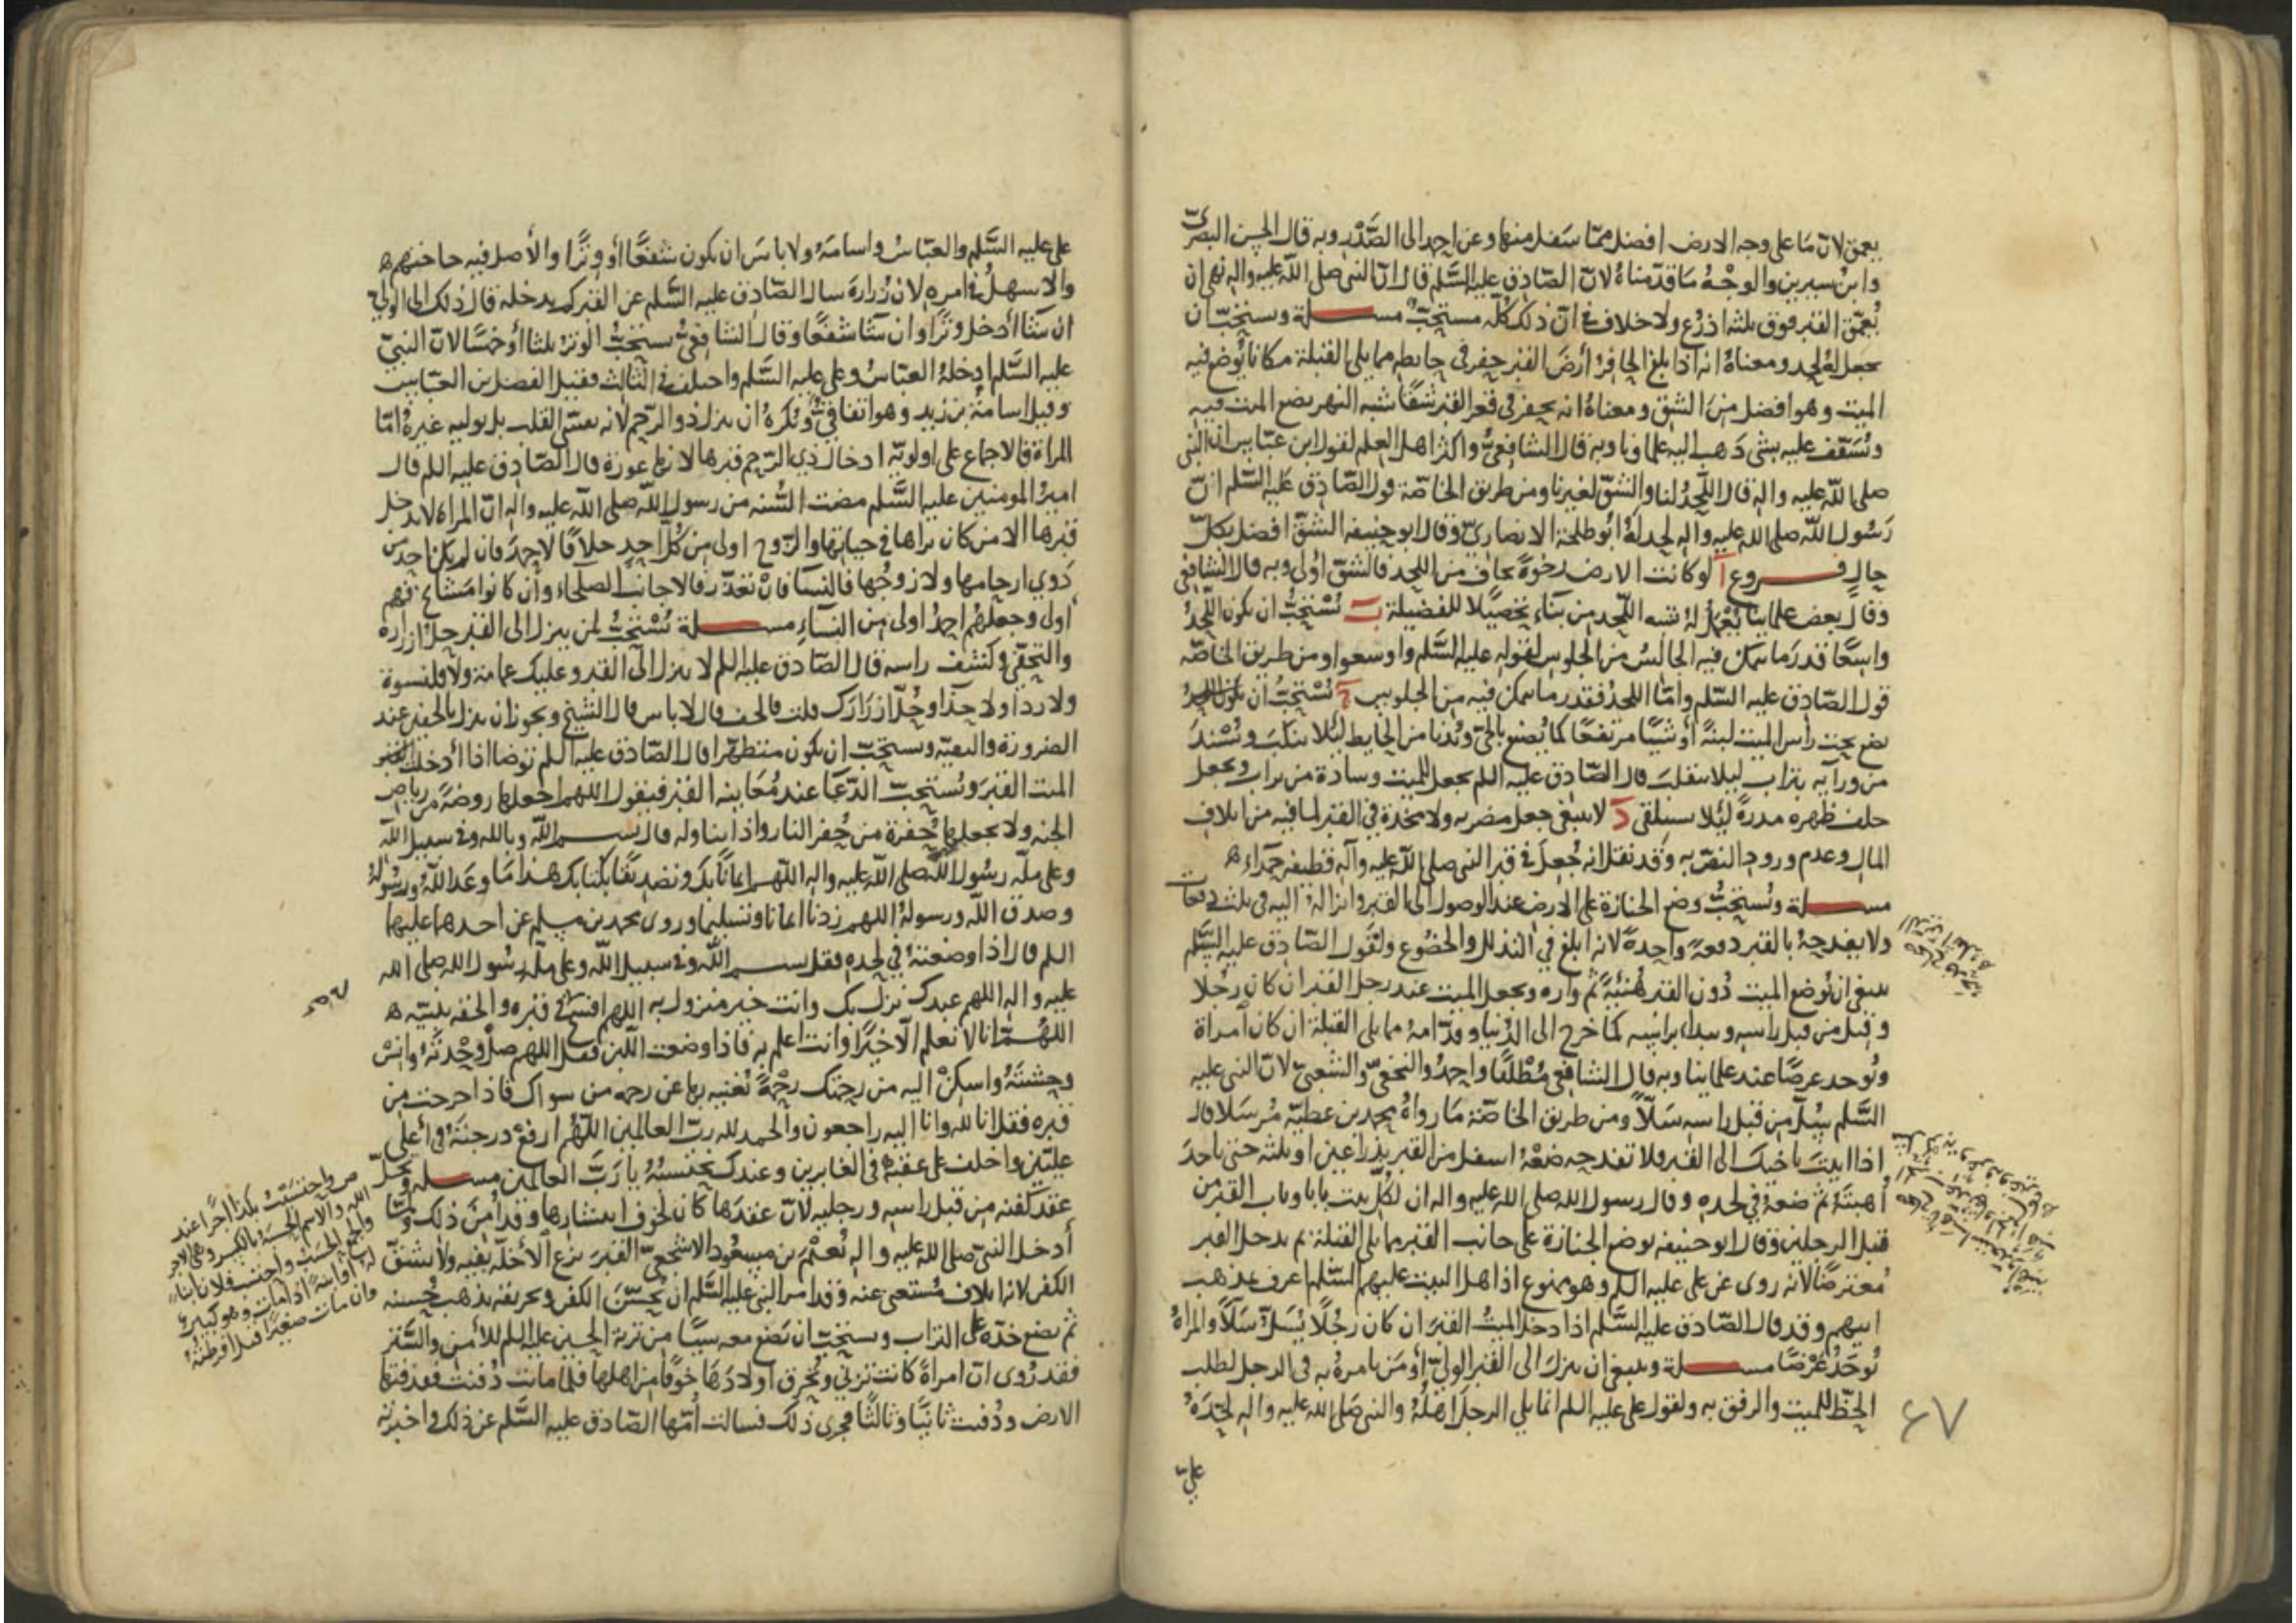 يعمق لان ما على وجه الارض افضل مما سفل منها وعن احمد الى الصدر وبه قال الحسن البصري
وابن سيرين والوجه ما قدمناه لان الصادق عليه السلم قال ان النبي صلى الله عليه واله نهى ان
يعمق القبر فوق ثلثة اذرع ولا خلاف في ان ذلك كله مستحب مسلة ويستحب ان
يجعل له لحد ومعناه انه اذا بلغ الحافر أرض القبر حفر في حايطه مما يلي القبلة مكانا يوضع فيه
الميت وهو افضل من الشق ومعناه انه يحفر في قعر القبر شقا شبه النهر يضع الميت فيه
ويسقف عليه بشي ذهب اليه علماونا وبه قال الشافعي واكثر اهل العلم لقول ابن عباس ان النبي
صلى الله عليه واله قال اللحد لنا والشق لغيرنا ومن طريق الخاصة قول الصادق عليه السلم ان
رسول الله صلى الله عليه واله لحد له ابو طلحة الانصاري وقال ابو حنيفة الشق افضل بكل
حال فروع آ لو كانت الارض رخوة يخاف من اللحد فالشق أولى وبه قال الشافعي
وقال بعض علمائنا يعمل له شبه اللحد من بناء تحصيلا للفضيلة ب يستحب ان يكون اللحد
واسعا قدر ما يتمكن فيه الجالس من الجلوس لقوله عليه السلم واوسعوا ومن طريق الخاصة
قول الصادق عليه السلم واما اللحد فقدر ما يمكن فيه من الجلوس ج يستحب ان
يضع تحت رأس الميت لبنة أو شيا مرتفعا كما يصنع بالحي ويدنا من الحايط لئلا ينكب ويسند
من ورايه بتراب ليلا ينقلب قال الصادق عليه السلم يجعل للميت وسادة من تراب ويجعل
خلف ظهره مدرة لئلا يستلقي د لا ينبغي جعل مضربه ولا مخدة في القبر لما فيه من اتلاف
المال وعدم ورود النص به وقد نقل انه جعل في قبر النبي صلى الله عليه وآله قطيفة حمراء ه
مسلة ويستحب وضع الجنازة على الارض عند الوصول الى القبر وانزاله اليه في ثلث دفعات
ولا يفدحه بالقبر دفعة واحدة لانه ابلغ في التذلل والخضوع ولقول الصادق عليه السلم
ينبغي ان يوضع الميت دون القبر هنيئة ثم واره ويجعل الميت عند رجل القبر ان كان رجلا
وقيل من قبل راسه ويبدا براسه كما خرج الى الدنيا وقدامه مما يلي القبلة ان كان امراة
ويوخذ عرضا عند علماينا وبه قال الشافعي مطلقا واحمد والنخعي والشعبي لان النبي عليه
السلم سل من قبل راسه سلا ومن طريق الخاصة ما رواه محمد بن عطية مرسلا قال
اذا اتيت باخيك الى القبر فلا تفدحه ضعه اسفل من القبر بذراعين او ثلثة حتى ياخذ
أهبته ثم ضعه في لحده وقال رسول الله صلى الله عليه واله ان لكل بيت بابا وباب القبر من
قبل الرجلين وقال ابو حنيفة توضع الجنازة على جانب القبر مما يلي القبلة ثم يدخل القبر
معترضا لانه روى عن على عليه السلم وهو ممنوع اذ اهل البيت عليهم السلم اعرف بمذهب
ابيهم وقد قال الصادق عليه السلم اذا دخل الميت القبر ان كان رجلا يسل سلا والمراة
توخذ عرضا مسلة وينبغي ان ينزل الى القبر الولي أو من يامره به في الرجل لطلب
الحظ للميت والرفق به ولقول على عليه السلم انما يلي الرجل اهله والنبي صلى الله عليه واله لحده
على
٤٧
على عليه السلم والعباس واسامة ولا باس ان يكون شفعا أو وترا والأصل فيه حاجتهم ه
والاسهل في امره لان زرارة سال الصادق عليه السلم عن القبر كم يدخله قال ذلك الى الولي
ان شا أدخل وترا وان شا شفعا وقال الشافعي يستحب الوتر ثلثا أو خمسا لان النبي
عليه السلم ادخله العباس وعلى عليه السلم واختلف في الثالث فقيل الفضل بن العباس
وقيل اسامة بن زيد وهو اتفاقي ويكره ان ينزل ذو الرحم لانه يقسي القلب بل يوليه غيره اما
المراة فالاجماع على اولوية ادخال ذي الرحم قبرها لانها عورة قال الصادق عليه السلم قال
امير المومنين عليه السلم مضت السنة من رسول الله صلى الله عليه واله ان المراة لا يدخل
قبرها الا من كان يراها في حياتها والزوج اولى من كل احد خلافا لاحمد فان لم يكن احد من
ذوي ارحامها ولا زوجها فالنسا فان تعذر فالاجانب الصلحاء وان كانوا مشايخ فهم
اولى وجعلهم احمد اولى من النساء مسلة يستحب لمن ينزل الى القبر حل ازراره
والتحفي وكشف راسه قال الصادق عليه السلم لا ينزل الى القبر وعليك عمامة ولا قلنسوة
ولا رداء ولا حذا وحل ازرارك قلت فالخف قال لا باس قال الشيخ ويجوز ان ينزل بالخفين عند
الضرورة والتقية ويستحب ان يكون متطهرا قال الصادق عليه السلم توضا اذا أدخلت
الميت القبر ويستحب الدعا عند معاينه القبر فيقول اللهم اجعلها روضة من رياض
الجنة ولا تجعلها حفرة من حفر النار واذا تناوله قال بسم الله وبالله وفي سبيل الله
وعلى ملة رسول الله صلى الله عليه واله اللهم ايمانا بك وتصديقا بكتابك هذا ما وعد الله ورسوله
وصدق الله ورسوله اللهم زدنا ايمانا وتسليما وروى محمد بن مسلم عن احدهما عليهما
السلم قال اذا وضعته في لحده فقل بسم الله وفي سبيل الله وعلى ملة رسول الله صلى الله
عليه واله اللهم عبدك نزل بك وانت خير منزول به اللهم افسح في قبره والحقه بنبيه ه
اللهم انا لا نعلم الا خيرا وانت اعلم به فاذا وضعت اللبن فقل اللهم صل وحدته وانس
وحشته واسكن اليه من رحمتك رحمة تغنيه بها عن رحمه من سواك فاذا خرجت من
قبره فقل انا لله وانا اليه راجعون والحمد لله رب العالمين اللهم ارفع درجته في أعلى
عليين واخلف على عقبه في الغابرين وعندك نحتسبه يا رب العالمين مسلة ويحل
عقد كفنه من قبل راسه ورجليه لان عقدها كان لخوف انتشارها وقد امن ذلك ولما
أدخل النبي صلى الله عليه واله نعيم بن مسعود الاشجعي القبر نزع الأخلة بفيه ولا يشق
الكفن لانه اتلاف مستغنى عنه وقد امر النبي عليه السلم ان يحسن الكفن وتخريقه يذهب حسنه
ثم يضع خده على التراب ويستحب ان يضع معه شيا من تربة الحسين عليه السلم للأمن والستر
فقد روى ان امراة كانت تزني وتحرق اولادها خوفا من اهلها فلما ماتت دفنت فقذفتها
الارض ودفنت ثانيا وثالثا فجرى ذلك فسالت أمها الصادق عليه السلم عن ذلك واخبرته
ص واحتسبت بكذا أجرا عند
الله والاسم الحسبة بالكسر وهي الاجر
والجمع الحسب واحتسب فلان ابنا
له او ابنة اذا مات وهو كبير
وان مات صغيرا قيل افترطه